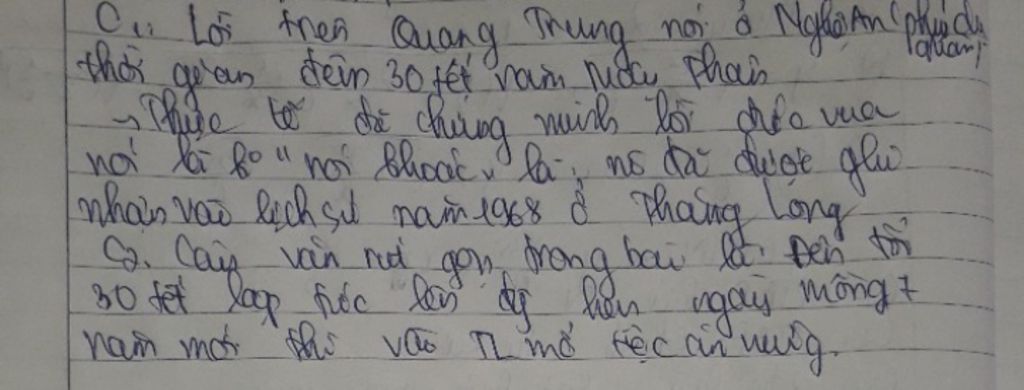 C1: Lời trên Quang Trung nói ở Nghệ An (phủ dụ quân)
thời gian đêm 30 tết năm Mậu Thân
→ Thực tế đã chứng minh lời của vua
nói là ko "nói khoác" là nó đã được ghi
nhận vào lịch sử năm 1968 ở Thăng Long
C2. Câu văn rút gọn trong bài là: Đến tối
30 tết lập tức lên đg hẹn ngày mồng 7
năm mới thì vào TL mở tiệc ăn mừng.